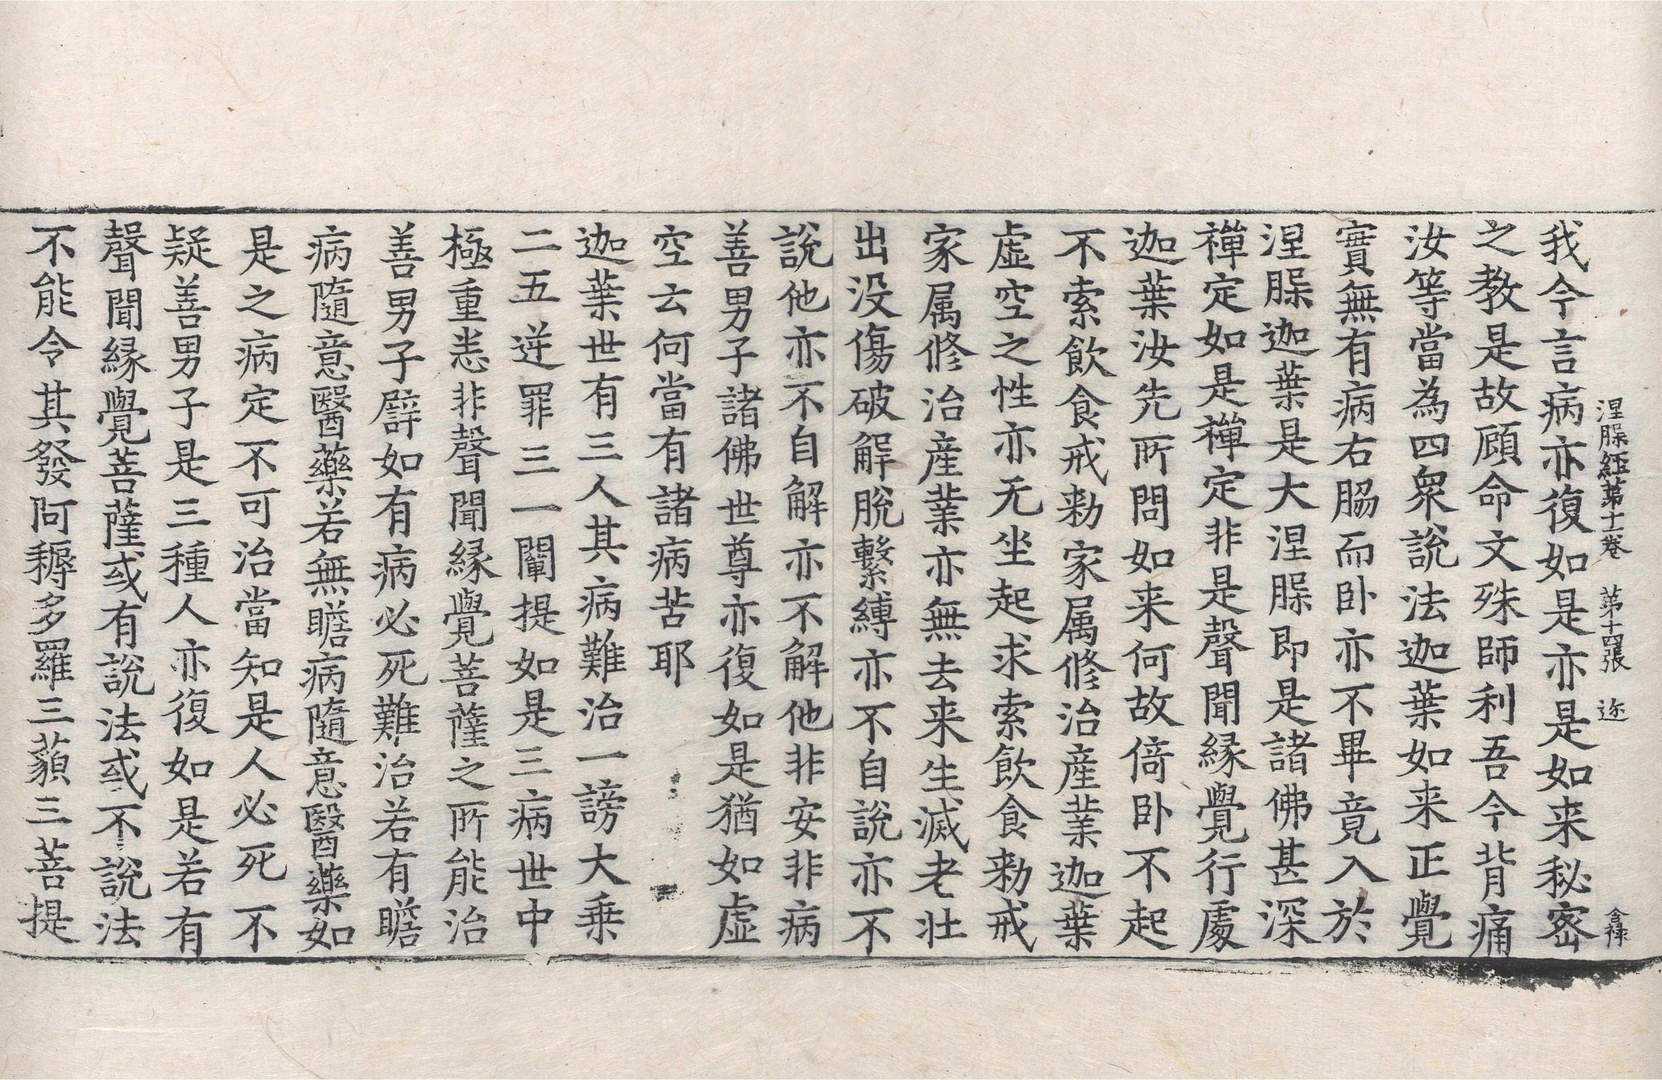 涅槃経第十一卷　第十四張　迩　含祿
我今言病亦復如是亦是如来秘密
之教是故顧命文殊師利吾今背痛
汝等當為四衆說法迦葉如来正覺
實無有病右脇而卧亦不畢竟入於
涅槃迦葉是大涅槃即是諸佛甚深
禪定如是禪定非是聲聞縁覺行處
迦葉汝先所問如来何故倚卧不起
不索飲食戒勑家属修治産業迦葉
虚空之性亦无坐起求索飲食勑戒
家属修治産業亦無去来生滅老壯
出没傷破解脫繫縛亦不自說亦不
說他亦不自解亦不解他非安非病
善男子諸佛世尊亦復如是猶如虚
空云何當有諸病苦耶
迦葉世有三人其病難治一謗大乗
二五逆罪三一闡提如是三病世中
極重悉非聲聞縁覺菩薩之所能治
善男子譬如有病必死難治若有瞻
病隨意醫藥若無瞻病隨意醫藥如
是之病定不可治當知是人必死不
疑善男子是三種人亦復如是若有
聲聞縁覺菩薩或有說法或不說法
不能令其發阿耨多羅三藐三菩提